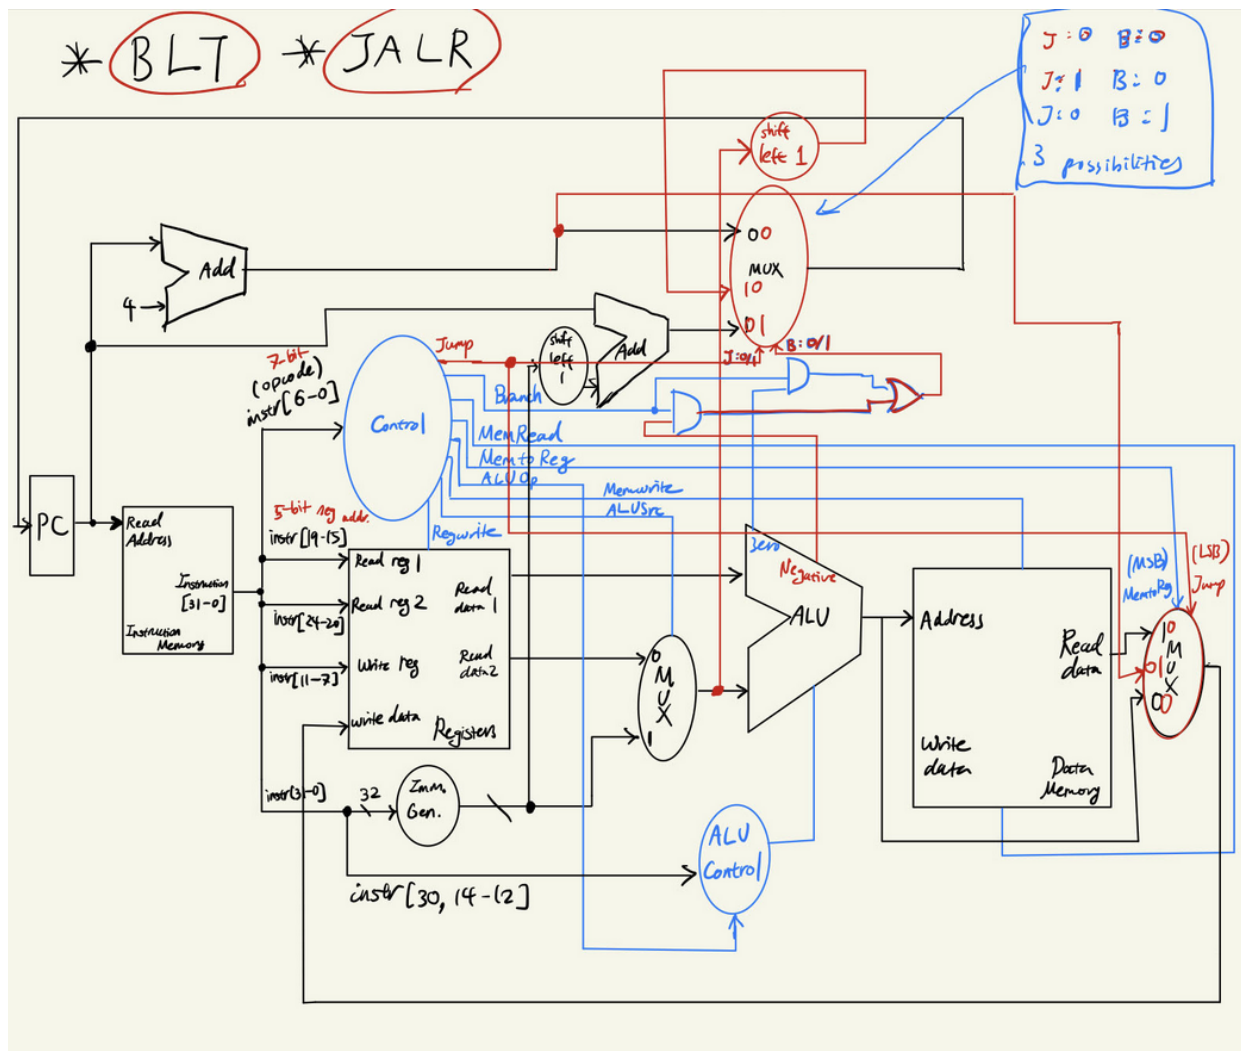 * BLT * JALR
J: 0 B: 0
J: 1 B: 0
J: 0 B: 1
3 possibilities
shift
left 1
00
MUX
10
01
J: 0/1
B: 0/1
Add
4
shift
left
1
Add
7-bit
(opcode)
instr[6-0]
Control
Jump
Branch
MemRead
MemtoReg
ALUOp
Memwrite
ALUSrc
Regwrite
PC
Read
Address
Instruction
[31-0]
Instruction
Memory
5-bit reg addr.
instr[19-15]
instr[24-20]
instr[11-7]
instr[31-0]
Read reg 1
Read reg 2
Write reg
write data
Read
data 1
Read
data2
Registers
32
Imm.
Gen.
instr[30, 14-12]
0
M
U
X
1
Zero
Negative
ALU
ALU
Control
Address
Read
data
Write
data
Data
Memory
(MSB)
MemtoReg
(LSB)
Jump
10
M
01 U
X
00